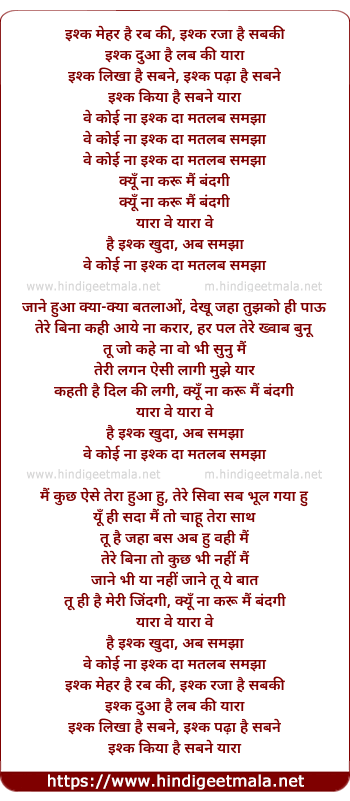 इश्क मेहर है रब की, इश्क रजा है सबकी
इश्क दुआ है लब की यारा
इश्क लिखा है सबने, इश्क पढ़ा है सबने
इश्क किया है सबने यारा
वे कोई ना इश्क दा मतलब समझा
वे कोई ना इश्क दा मतलब समझा
वे कोई ना इश्क दा मतलब समझा
क्यूँ ना करू मैं बंदगी
क्यूँ ना करू मैं बंदगी
यारा वे यारा वे
है इश्क खुदा, अब समझा
वे कोई ना इश्क दा मतलब समझा
www.hindigeetmala.net m.hindigeetmala.net
जाने हुआ क्या-क्या बतलाओं, देखू जहा तुझको ही पाऊ
तेरे बिना कही आये ना करार, हर पल तेरे ख्वाब बुनू
तू जो कहे ना वो भी सुनु मैं
तेरी लगन ऐसी लागी मुझे यार
कहती है दिल की लगी, क्यूँ ना करू मैं बंदगी
यारा वे यारा वे
है इश्क खुदा, अब समझा
वे कोई ना इश्क दा मतलब समझा
www.hindigeetmala.net m.hindigeetmala.net
मैं कुछ ऐसे तेरा हुआ हु, तेरे सिवा सब भूल गया हु
यूँ ही सदा मैं तो चाहू तेरा साथ
तू है जहा बस अब हु वही मैं
तेरे बिना तो कुछ भी नहीं मैं
जाने भी या नहीं जाने तू ये बात
तू ही है मेरी जिंदगी, क्यूँ ना करू मैं बंदगी
यारा वे यारा वे
है इश्क खुदा, अब समझा
वे कोई ना इश्क दा मतलब समझा
इश्क मेहर है रब की, इश्क रजा है सबकी
इश्क दुआ है लब की यारा
इश्क लिखा है सबने, इश्क पढ़ा है सबने
इश्क किया है सबने यारा
https://www.hindigeetmala.net